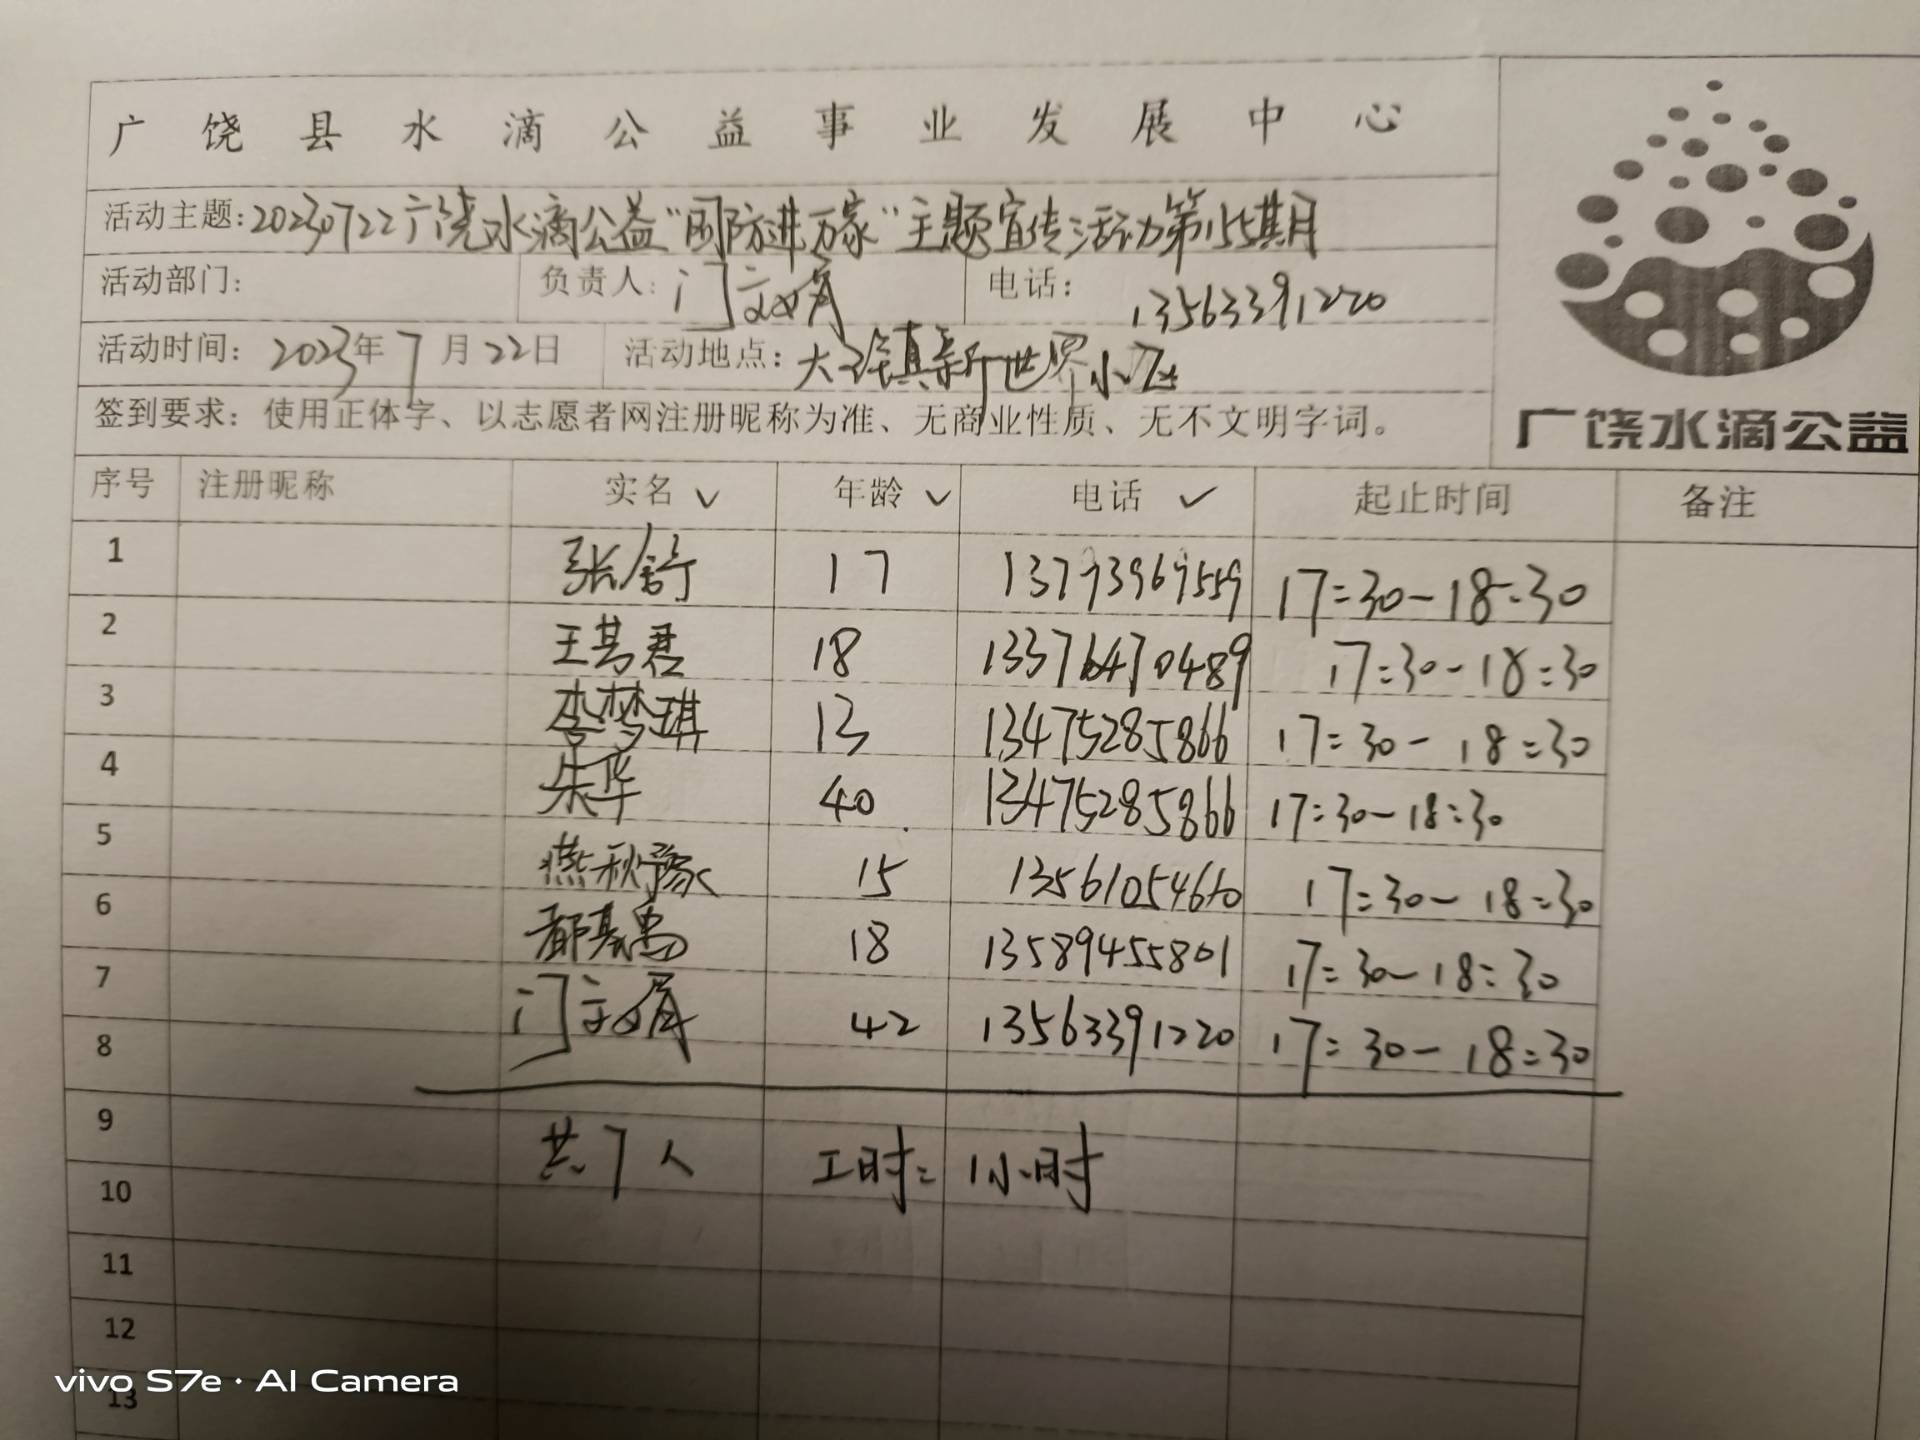 广饶县水滴公益事业发展中心
活动主题:20230722广饶水滴公益"国防进万家"主题宣传活动第155期
活动部门: 负责人: 门 电话: 13563391220
活动时间: 2023年7月22日 活动地点: 大王镇新世界小区
签到要求: 使用正体字、以志愿者网注册昵称为准、无商业性质、无不文明字词。
广饶水滴公益
序号 注册昵称 实名 ✓ 年龄 ✓ 电话 ✓ 起止时间 备注
1 张舒 17 17:30-18:30
2 王君 18 13376470489 17:30-18:30
3 李梦琪 13 13475285866 17:30-18:30
4 朱华 40 13475285866 17:30-18:30
5 燕秋豫 15 13561054660 17:30-18:30
6 18 13589455801 17:30-18:30
7 门 42 13563391220 17:30-18:30
8
9 共7人 工时: 1小时
10
11
12
13
vivo S7e · AI Camera